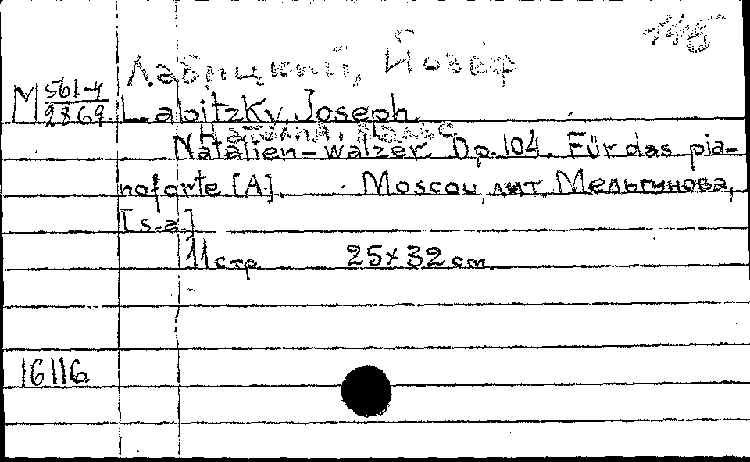 145
Лабицкий, Йозеф
М 561-4
2869
Labitzky, Joseph.
Наталия, вальс
Natalien-walzer. Op. 104. Für das pia-
noforte [A]. Moscou, лит. Мельгунова,
[s.a]
11 стр. 25x32 cm.
16116